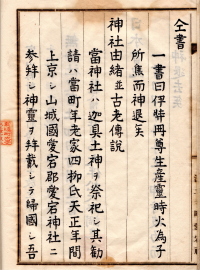 仝書
一書曰伊弉冉尊生產靈時火為子
所焦而神退矣
神社由緒並古老傳說
當神社ハ迦具土神ヲ祭祀シ其勸
請ハ當町年老家四柳氏天正年間
上京シ山城國愛宕郡愛宕神社ニ
参拜シ神靈ヲ拜戴シテ歸國シ吾